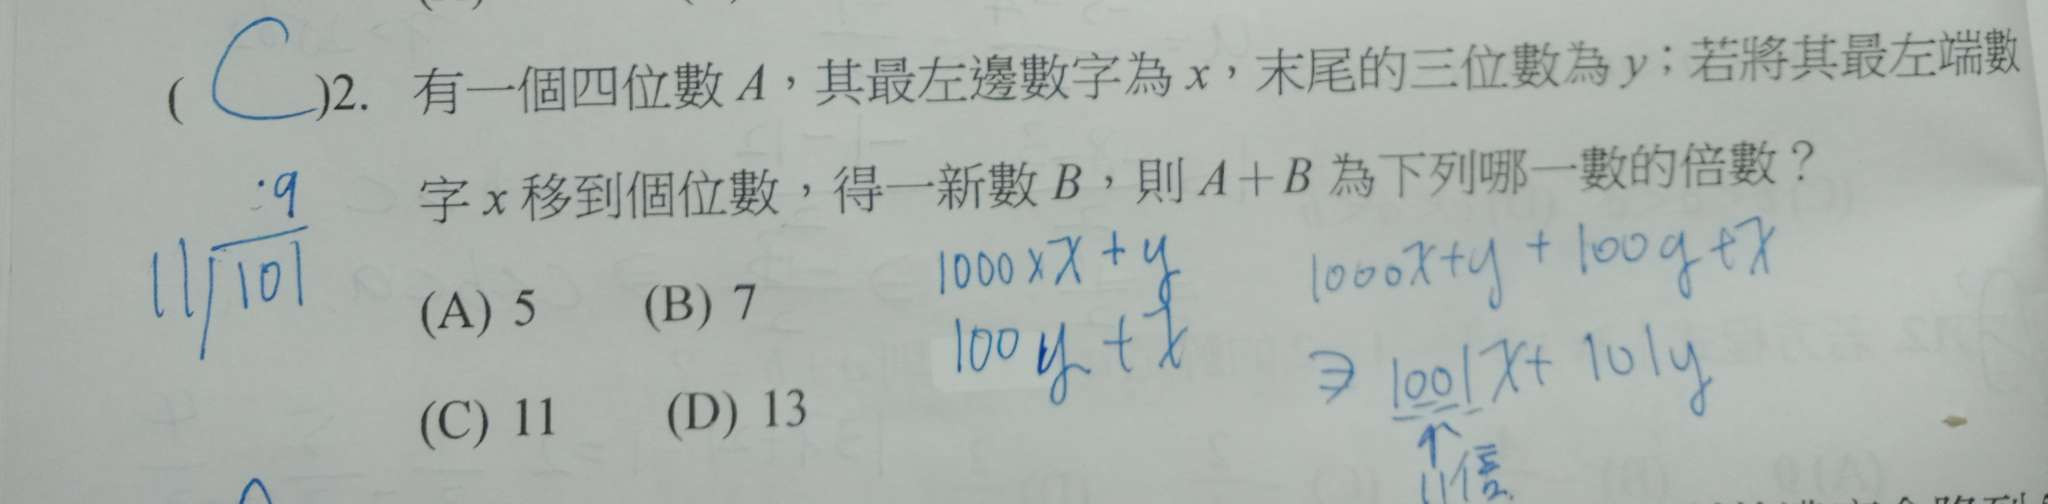 ( C )2. 有一個四位數 A，其最左邊數字為 x，末尾的三位數為 y；若將其最左端數
字 x 移到個位數，得一新數 B，則 A＋B 為下列哪一數的倍數？
(A) 5 (B) 7
(C) 11 (D) 13
9
11 101
1000×x+y
100y+x
1000x+y+100y+x
⇒ 1001x+101y
↑
11倍